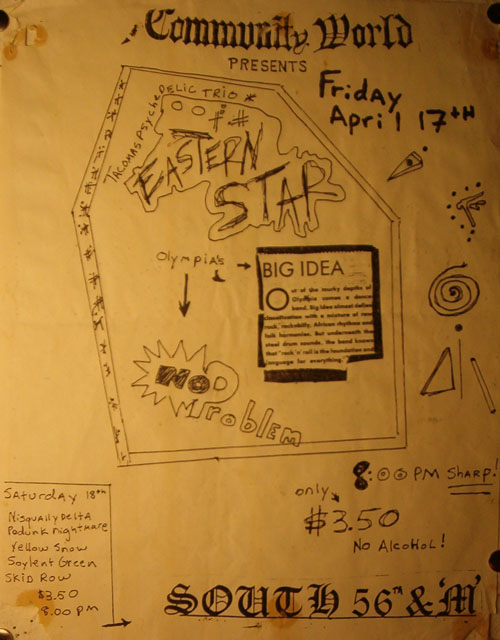 Community World
PRESENTS
Friday
April 17TH
TACOMAS PSYCHEDELIC TRIO
EASTERN
STAR
OLYMPIA'S
BIG IDEA
Out of the murky depths of
Olympia comes a dance
band. Big Idea almost defies
classification with a mixture of
rock, rockabilly, African rhythms and
folk harmonies. But underneath the
steel drum sounds, the band knows
that "rock 'n' roll is the foundation and
language for everything."
NO
Problem
8:00 PM SHARP!
only
$3.50
No AlcoHol!
SATurday 18TH
Nisqually Delta
Podunk Nightmare
Yellow Snow
Soylent Green
SKID ROW
$3.50
8:00 PM
SOUTH 56TH & 'M'